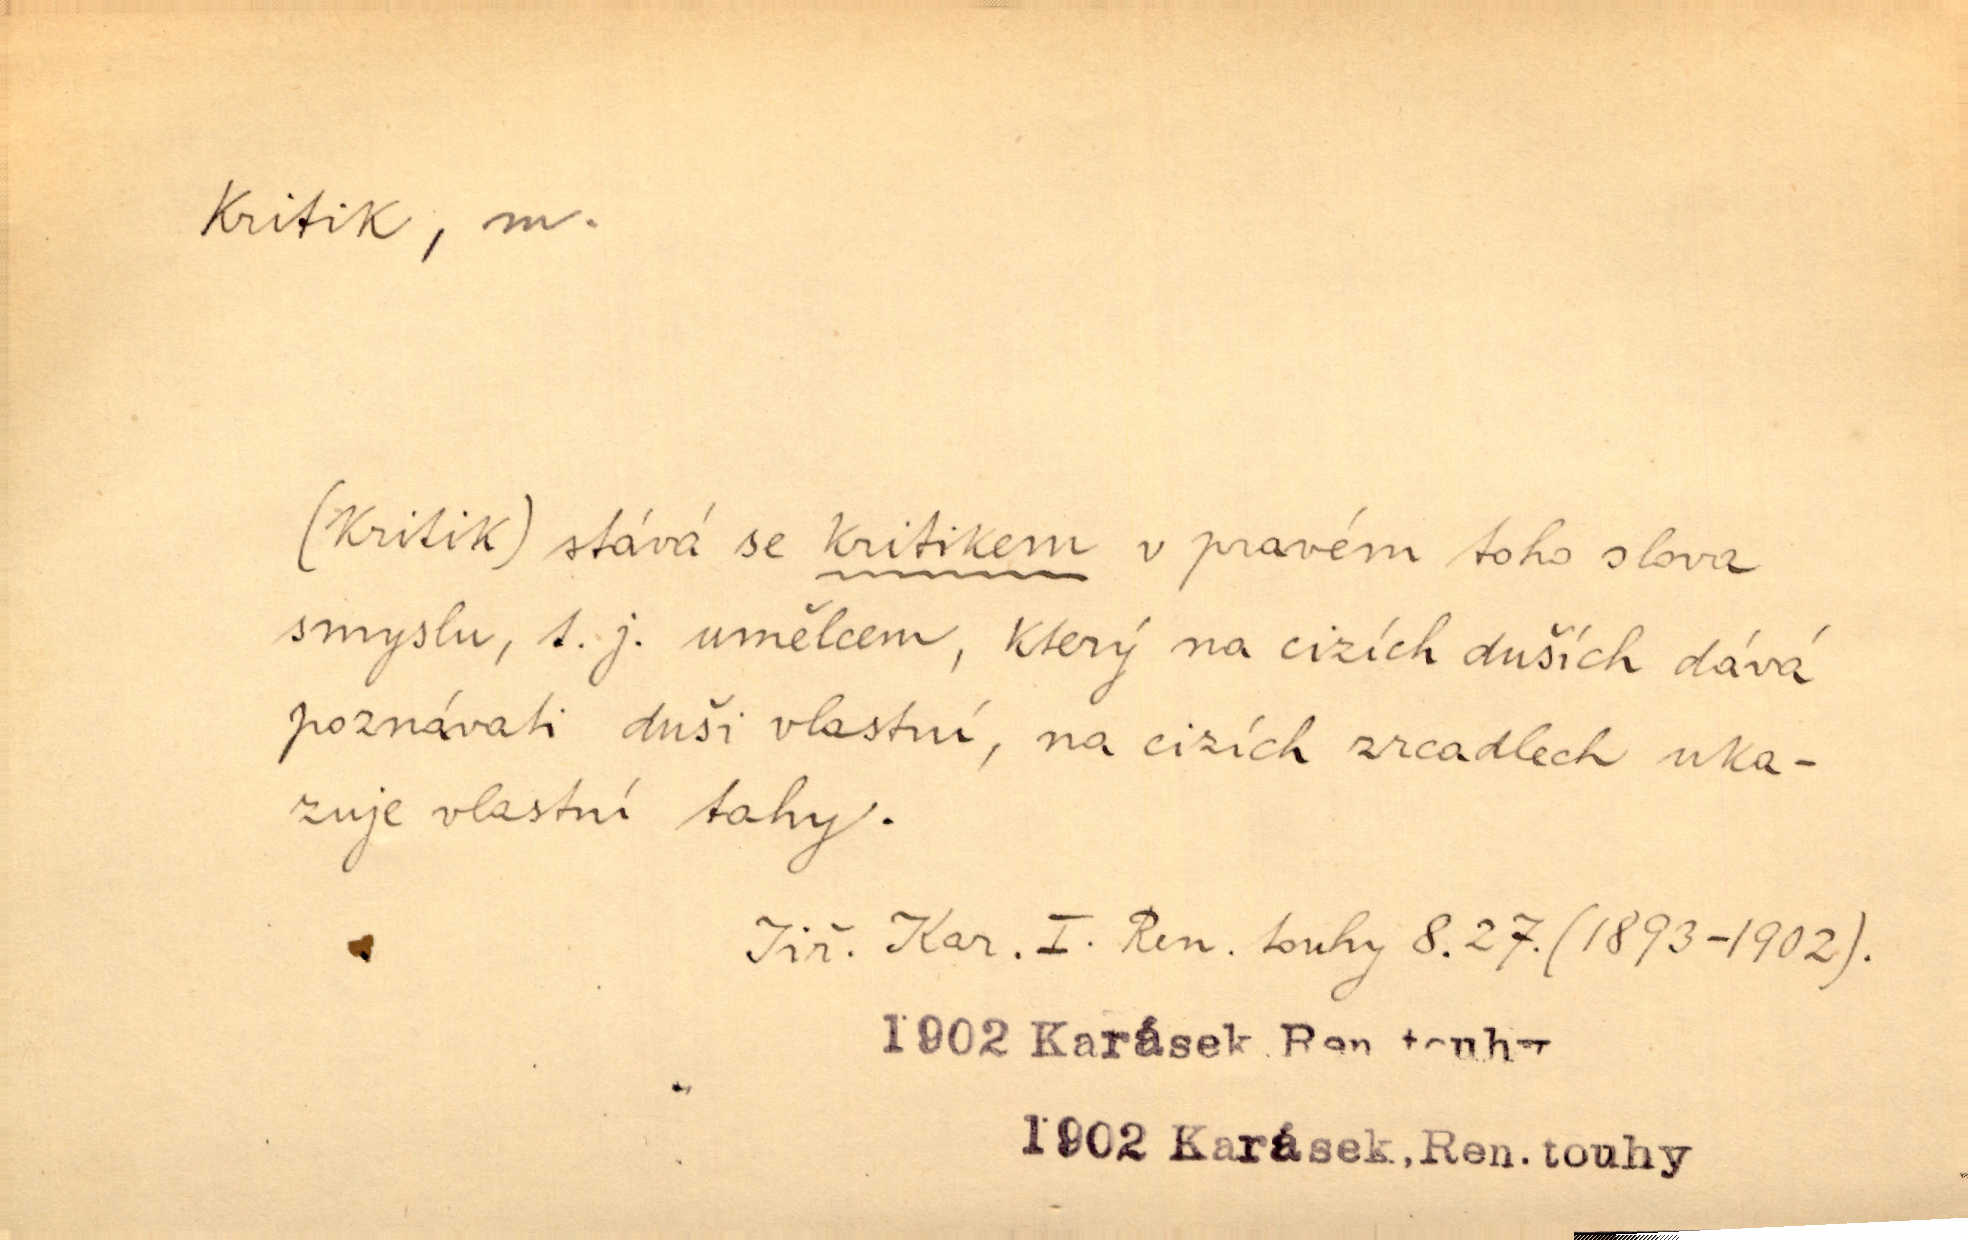 Kritik, m.
(Kritik) stává se kritikem v pravém toho slova
smyslu, t. j. umělcem, který na cizích duších dává
poznávati duši vlastní, na cizích zrcadlech uka-
zuje vlastní tahy.
Jiř. Kar. I. Ren. touhy 8.27.(1893-1902).
1902 Karásek Ren touhy
1902 Karásek,Ren.touhy